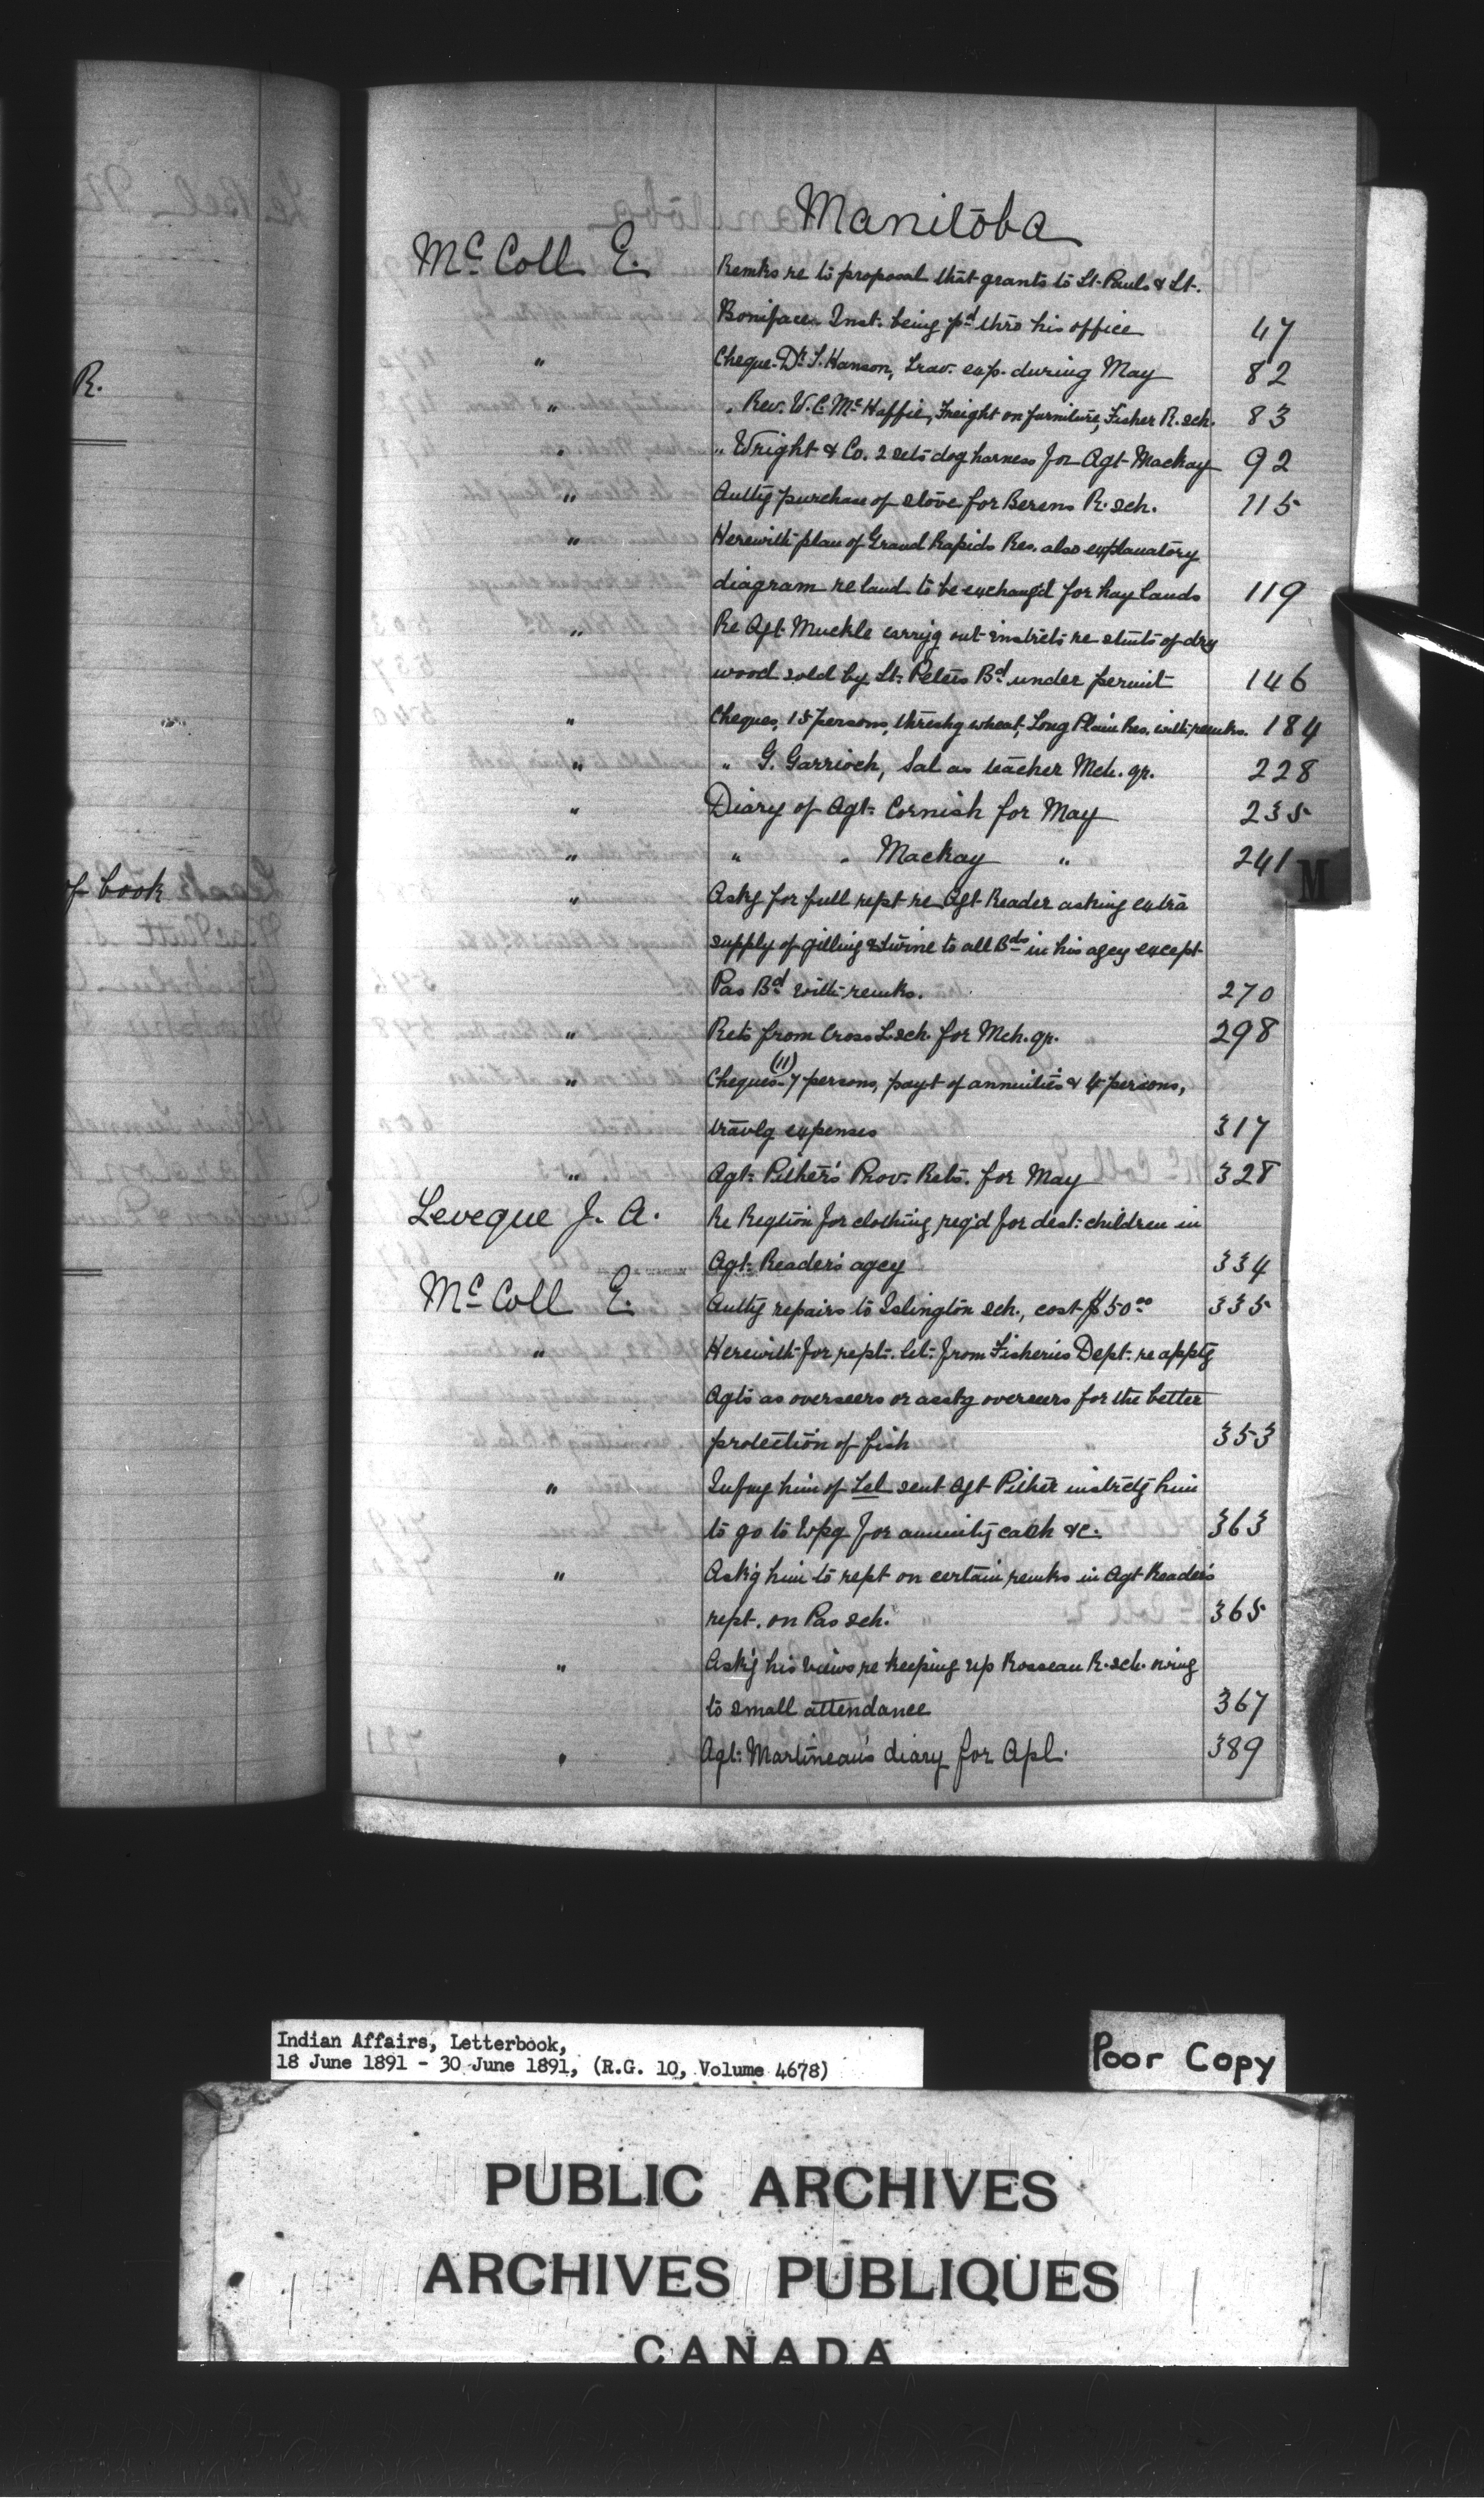 Manitoba
McColl E. Remks re to proposal that grants to St. Pauls & St.
Boniface Inst. being pd thro his office 47
" Cheque Dr. S. Hanson, Trav. exp. during May 82
" " Rev. W. C. McHaffie, Freight on furniture, Fisher R. sch. 83
" " Wright & Co. 2 sets dog harness for Agt Mackay 92
" Authg purchase of stove for Berens R. sch. 115
" Herewith plan of Grand Rapids Res. also explanatory
diagram re land to be exchang'd for hay lands 119
" Re Agt Muckle carryg out instrcts re stmts of dry
wood sold by St. Peters Bd under permit 146
" Cheques, 15 persons, threshg wheat, Long Plain Res. with remks. 184
" " G. Garrioch, Sal as teacher Mch. qr. 228
" Diary of Agt. Cornish for May 235
" " " Mackay " 241
" Askg for full rept re Agt Reader asking extra
supply of gilling & twine to all Bds in his agcy except
Pas Bd with remks. 270
" Rets from Cross L. sch. for Mch. qr. 298
" Cheques (11) - 7 persons, payt of annuities & 4 persons,
travlg expenses 317
" Agt. Pither's Prov. Rets. for May 328
Leveque J. A. Re Reqtion for clothing req'd for dest. children in
Agt. Reader's agcy 334
McColl E. Authg repairs to Islington sch., cost $50.00 335
" Herewith for rept. let. from Fisheries Dept. re apptg
Agts as overseers or asstg overseers for the better
protection of fish 353
" Infmg him of Tel sent Agt Pither instrctg him
to go to Wpg for annuity cash &c. 363
" Ask'g him to rept on certain remks in Agt Reader's
rept. on Pas sch. 365
" Ask'g his views re keeping up Rosseau R. sch. owing
to small attendance 367
" Agt. Martineau's diary for Apl. 389
R.
of book
M
Indian Affairs, Letterbook,
18 June 1891 - 30 June 1891, (R.G. 10, Volume 4678)
Poor Copy
PUBLIC ARCHIVES
ARCHIVES PUBLIQUES
CANADA